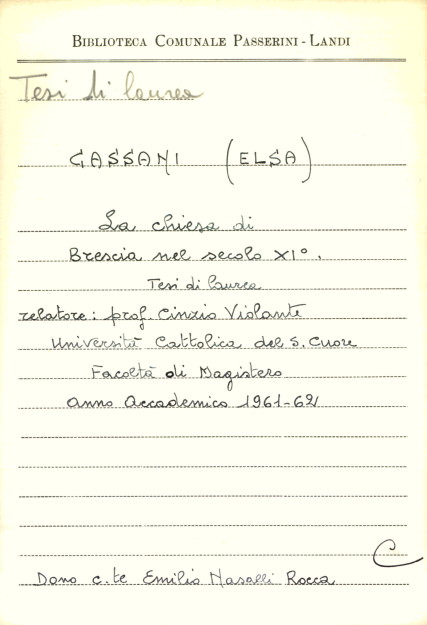 BIBLIOTECA COMUNALE PASSERINI - LANDI
Tesi di laurea
CASSANI (ELSA)
La chiesa di
Brescia nel secolo XI°.
Tesi di laurea
relatore: prof. Cinzio Violante
Università Cattolica del S. Cuore
Facoltà di Magistero
anno Accademico 1961-62
C
Dono c.te Emilio Nasalli Rocca